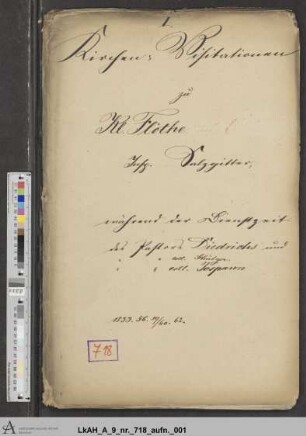 1.
Kirchen-Visitationen
zu
Kl. Flöthe
Insp. Salzgitter,
während der Dienstzeit
des Pastors Diedrichs und
" " coll.
" " coll.
1833. 36. 62.
718
LkAH_A_9_nr._718_aufn._001